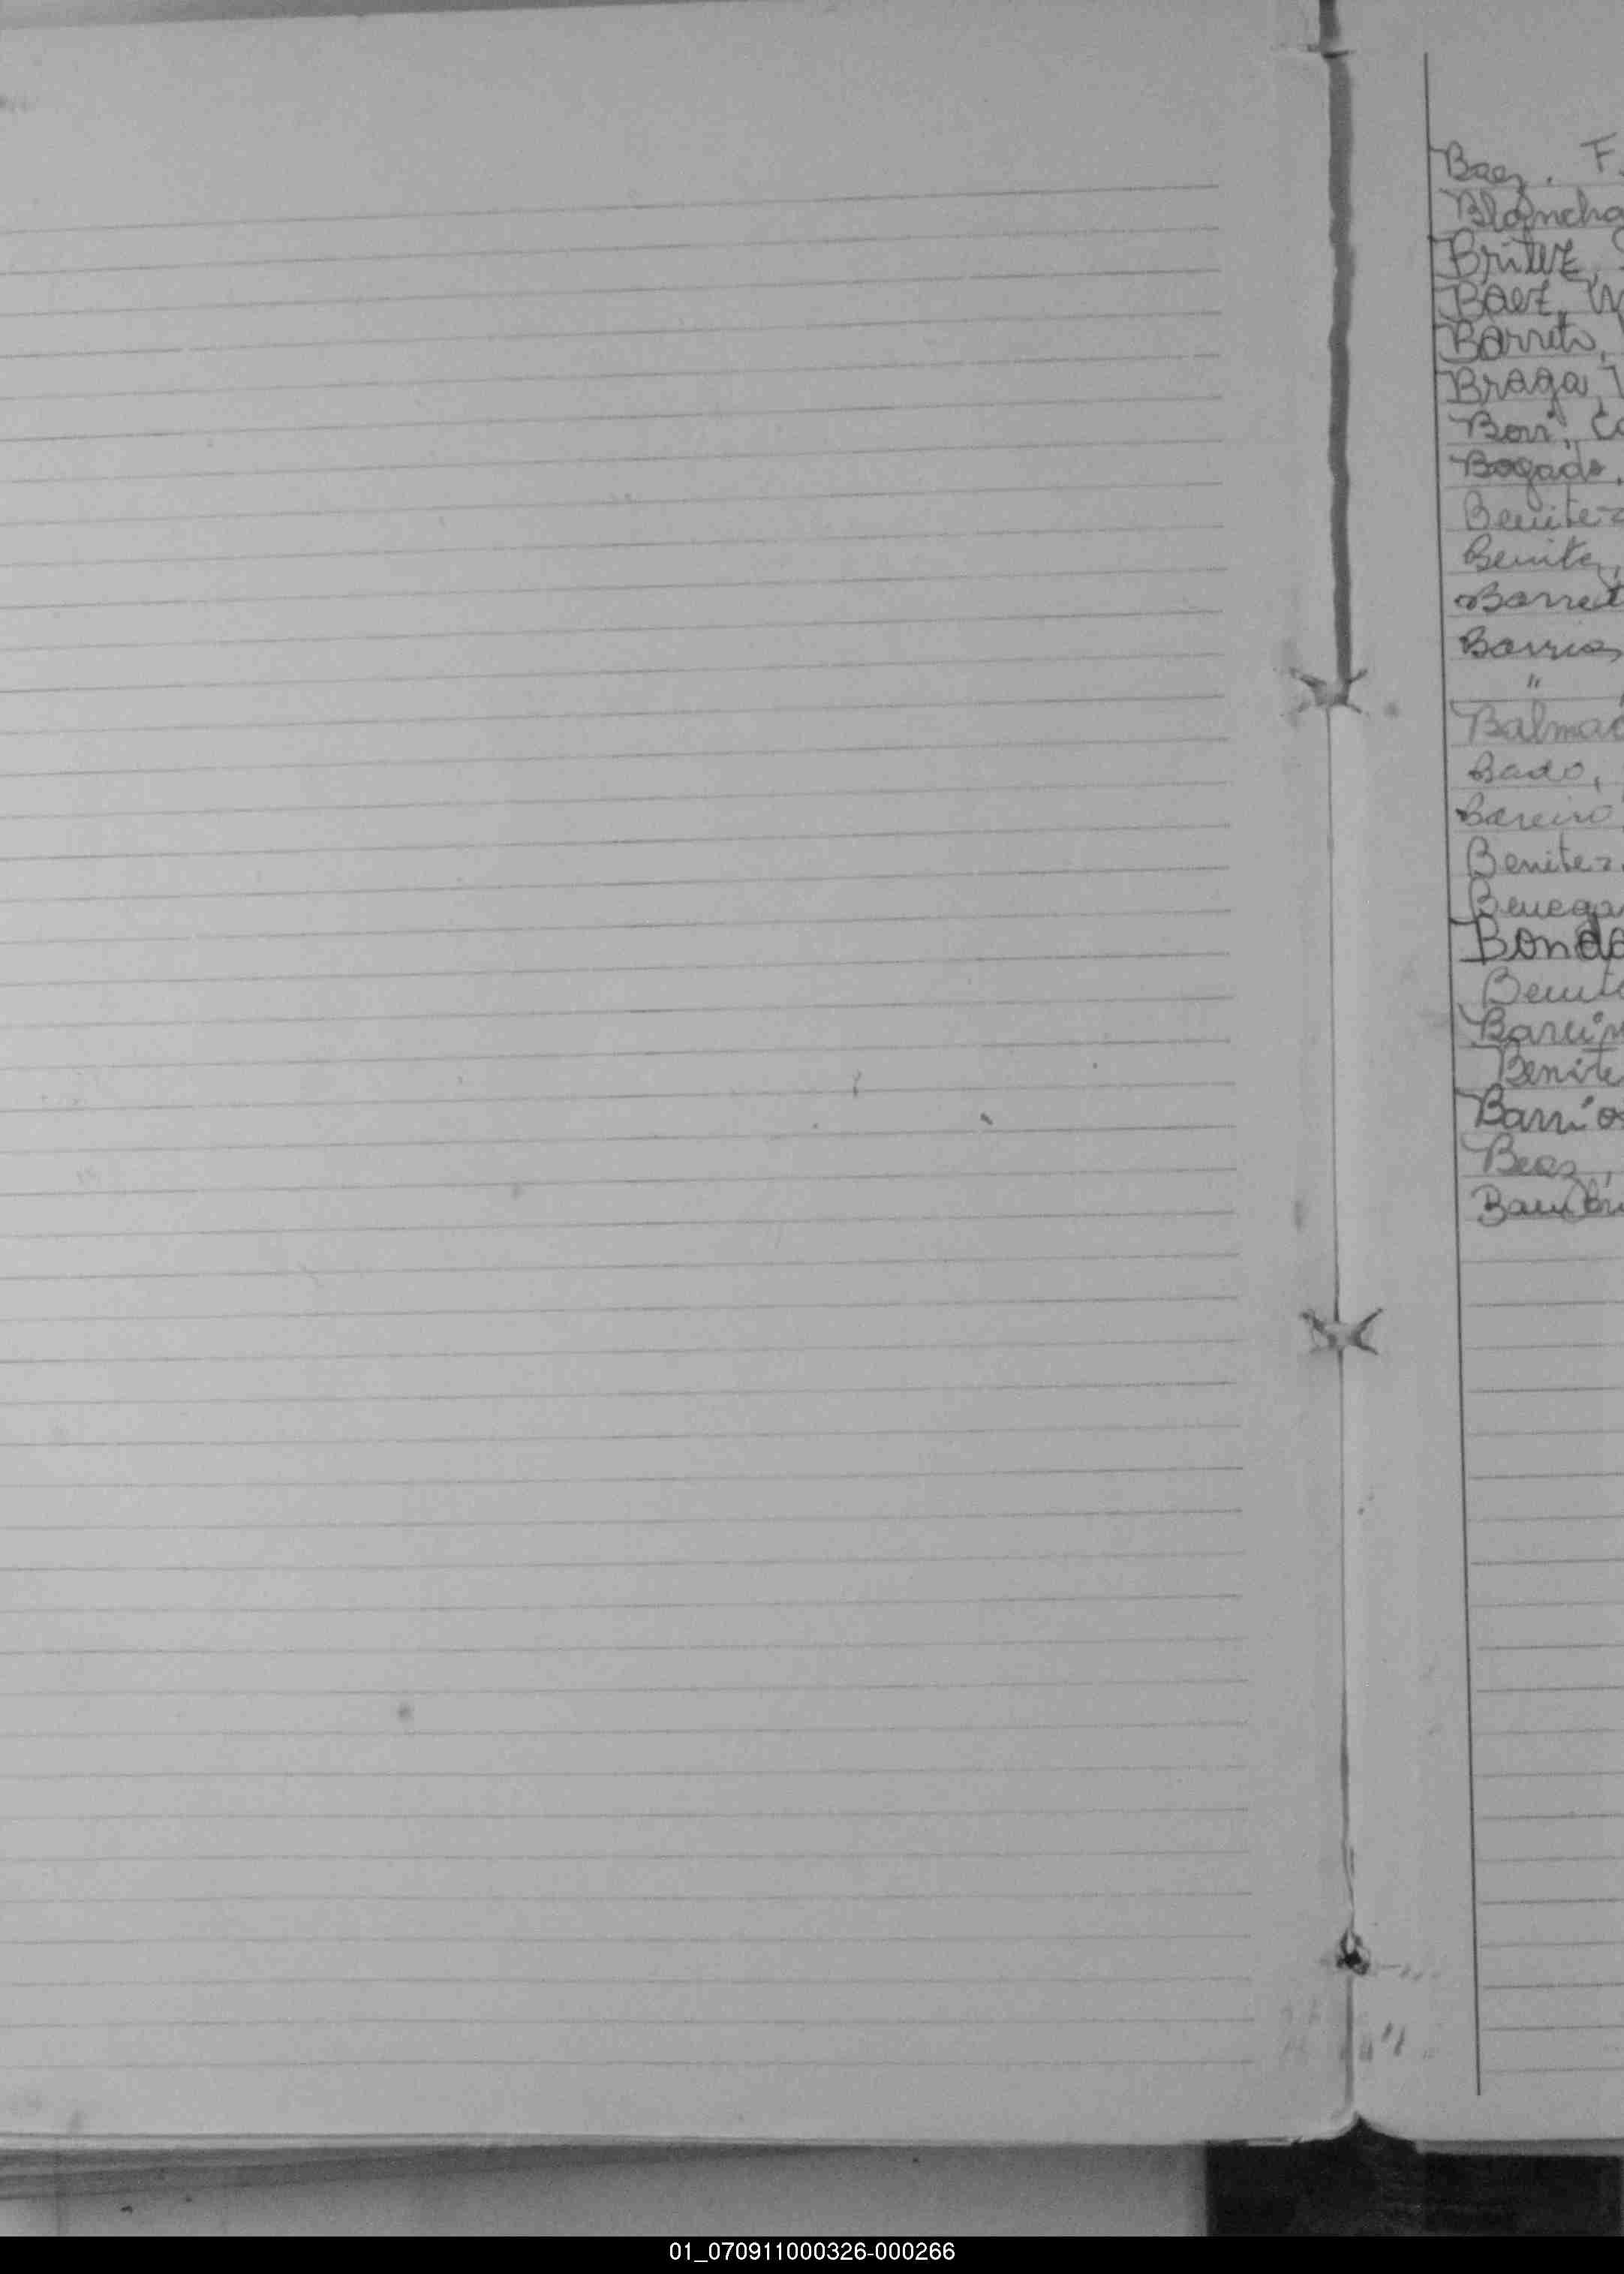 Baez. F
Blancha
Britez,
Baez,
Barreto,
Braga,
Bori, Co
Bogado,
Benitez
Benitez,
Barret
Barrios
"
Balmac
Bado,
Bareiro
Benitez,
Benega
Bonda
Benite
Bareir
Benite
Barrios
Beaz,
01_070911000326-000266